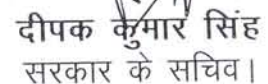 दीपक कुमार सिंह
सरकार के सचिव।